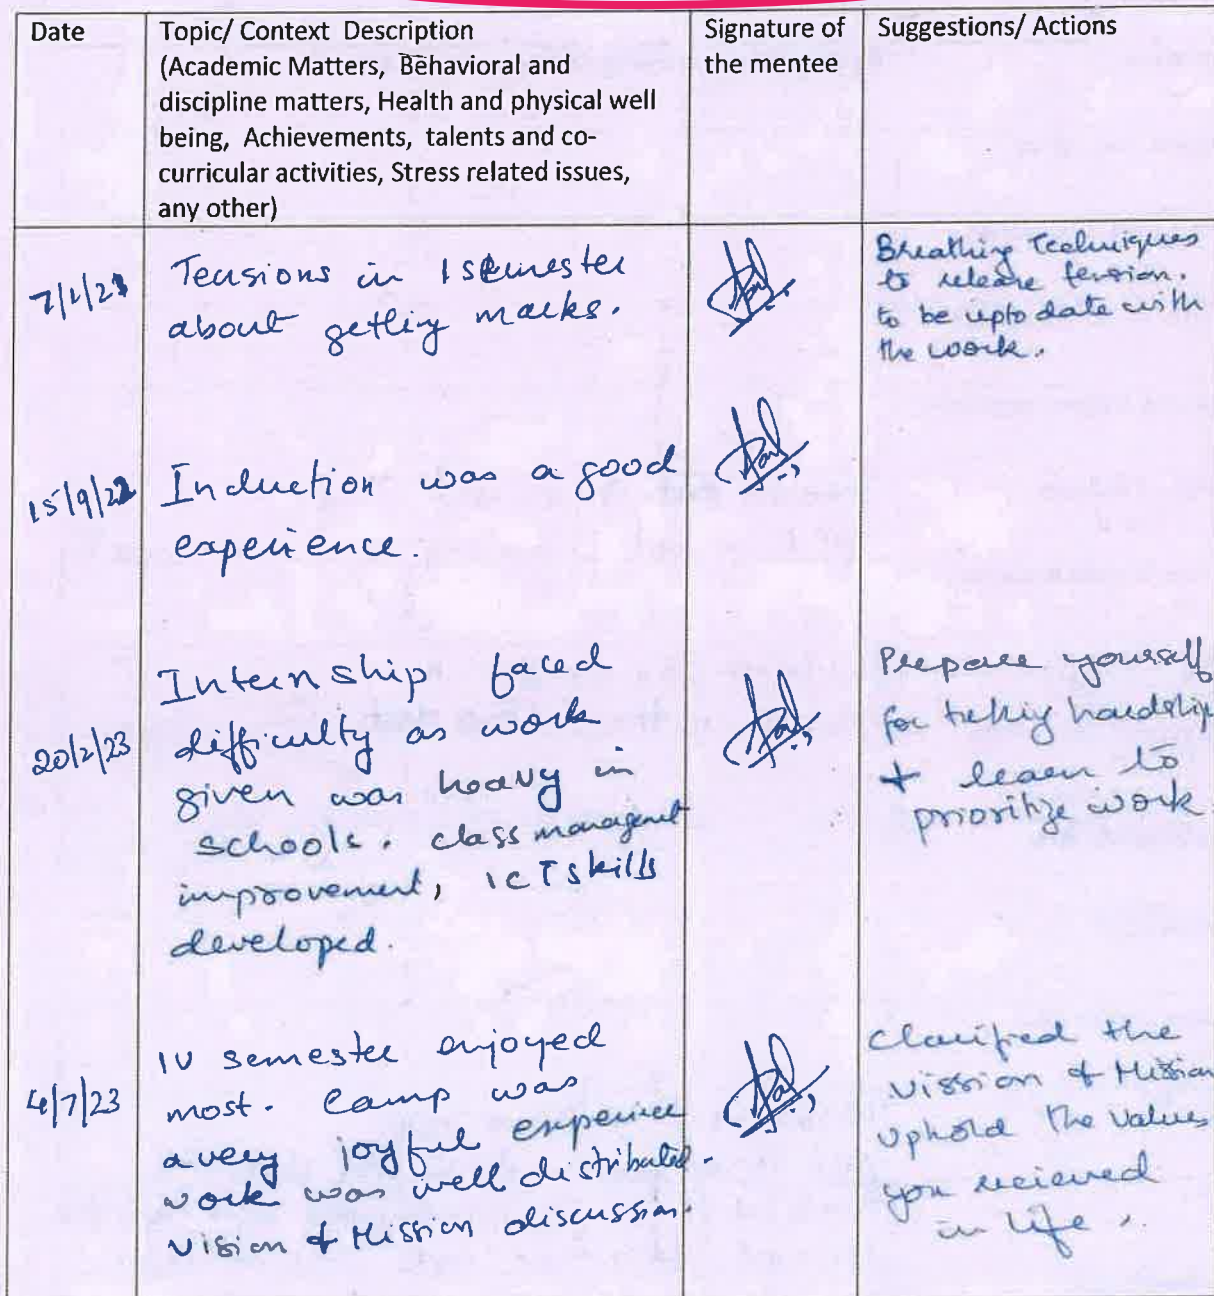 Date
Topic/ Context Description
(Academic Matters, Behavioral and
discipline matters, Health and physical well
being, Achievements, talents and co-
curricular activities, Stress related issues,
any other)
Signature of
the mentee
Suggestions/ Actions
Tensions in 1 semester
about getting marks.
Breathing Techniques
to release tension.
to be upto date with
the work.
15/9/22
Induction was a good
experience.
20/2/23
Internship faced
difficulty as work
given was heavy in
schools. class managemet
improvement, ICT skills
developed.
Prepare yourself
for taking hardship
+ learn to
prioritize work
4/7/23
IV semester enjoyed
most. Camp was
a very joyful experience
work was well distributed.
vision & Mission discussion.
Clarified the
Vission & Mission
Uphold the values
you recieved
in life.